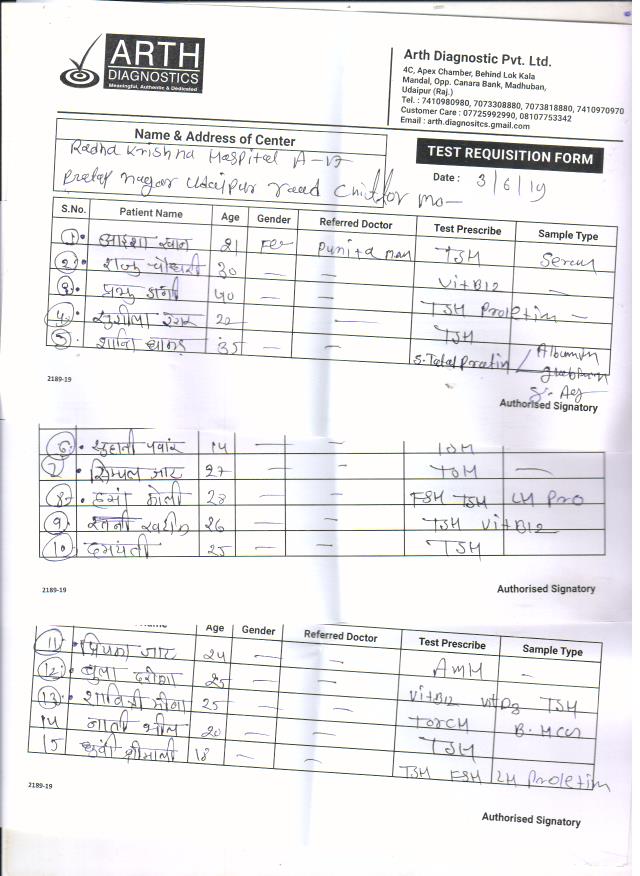 ARTH
DIAGNOSTICS
Meaningful, Authentic & Dedicated
Arth Diagnostic Pvt. Ltd.
4C, Apex Chamber, Behind Lok Kala
Mandal, Opp. Canara Bank, Madhuban,
Udaipur (Raj.)
Tel. : 7410980980, 7073308880, 7073818880, 7410970970
Customer Care : 07725992990, 08107753342
Email : arth.diagnositcs.gmail.com
Name & Address of Center
TEST REQUISITION FORM
Radha Krishna Hospital A-17
Pratap nagar Udaipur raod Chittor
Date : 3/6/19
S.No. Patient Name Age Gender Referred Doctor Test Prescribe Sample Type
1. आईशा खान 21 Fe Punita mam TSH Serum
2. 30 — — Vit B12 —
3. 40 — — TSH Proletin —
4. सुशीला 22 — TSH
5. 35 — — S. Total Protin / Albumin
2189-19
Authorised Signatory
6. सुहानी पवार 14 — — TSH
7. सिम्पल जाट 27 — — TSH —
8. 28 — — FSH TSH LH Pro
9. 26 — — TSH Vit B12
10. दमयंती 25 — — TSH
2189-19
Authorised Signatory
Name Age Gender Referred Doctor Test Prescribe Sample Type
11. जाट 24 — — AMH —
12. 25 — — Vit B12 Vit D3 TSH
13. मीणा 25 — — Torch B. HCG
14 भील 20 — — TSH
15 श्रीमाली 18 — — TSH FSH LH Proletin
2189-19
Authorised Signatory